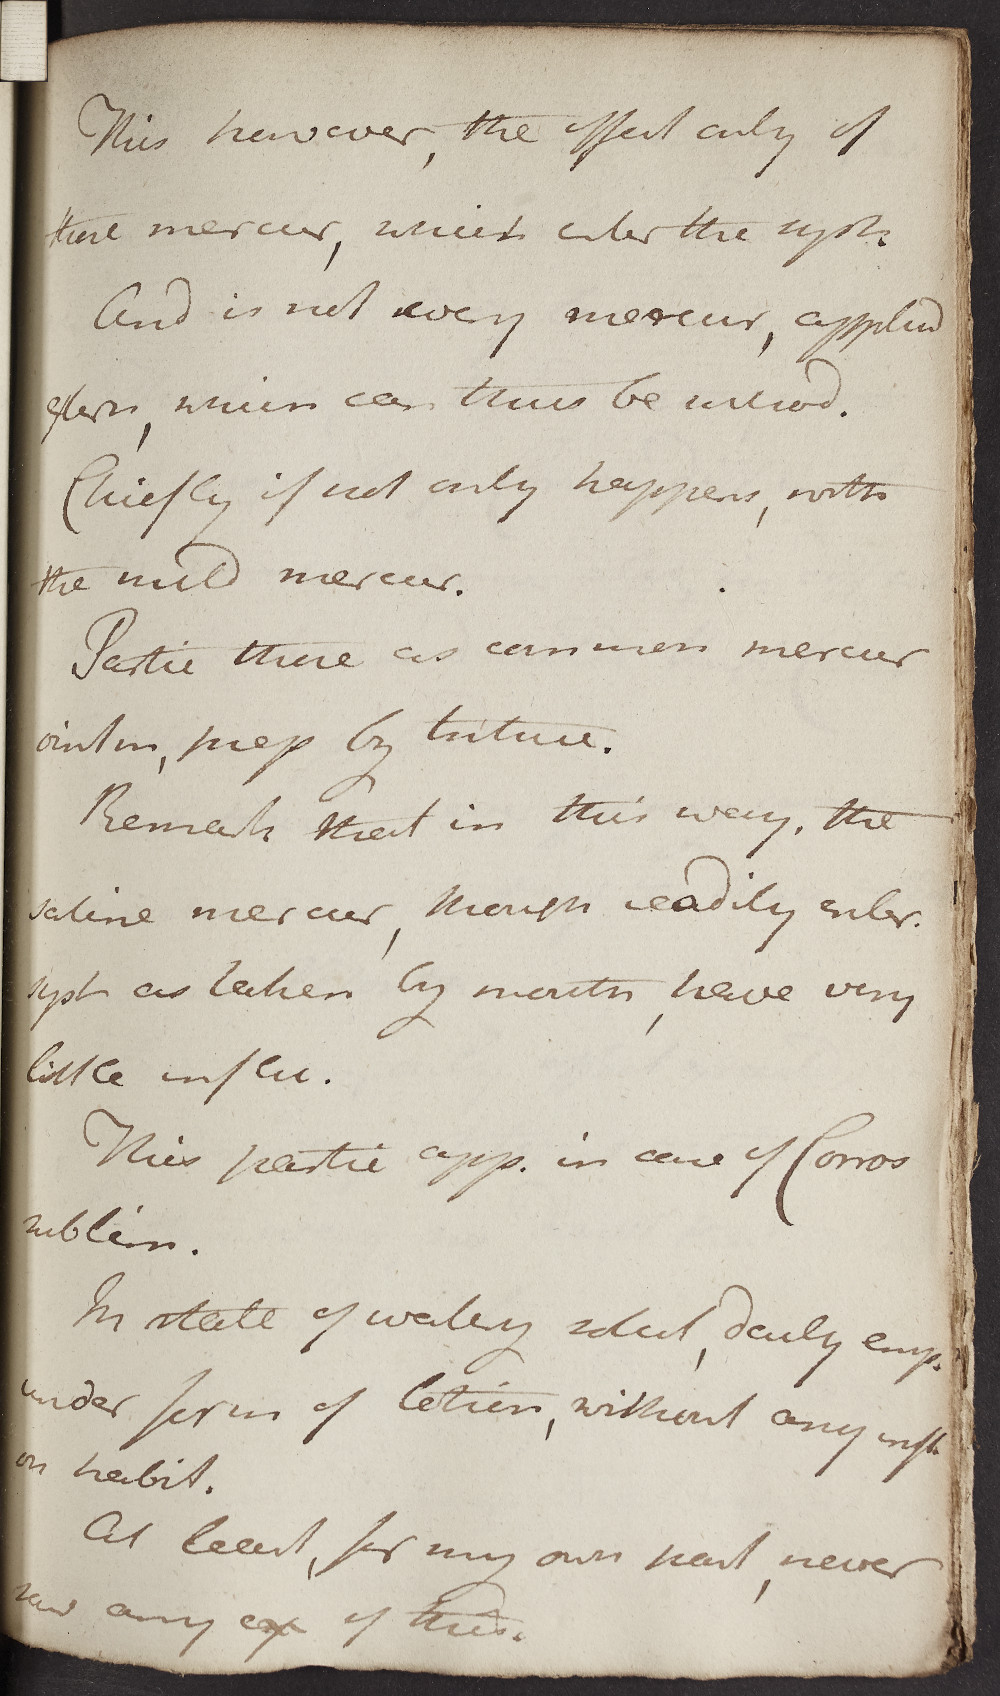 This however, the effect only of
those mercur, which enter the syst.
And is not every mercur, applied
extern, which can thus be introd.
Chiefly if not only happens, with
the mild mercur.
Partic those as common mercur
ointm, prep by triture.
Remark that in this way, the
saline mercur, though readily enter.
syst as taken by mouth, have very
little influ.
This partic app. in case of Corros
sublim.
In state of watery solut, daily emp.
under form of lotion, without any infl
on habit.
At least, for my own part, never
saw any ex of this.